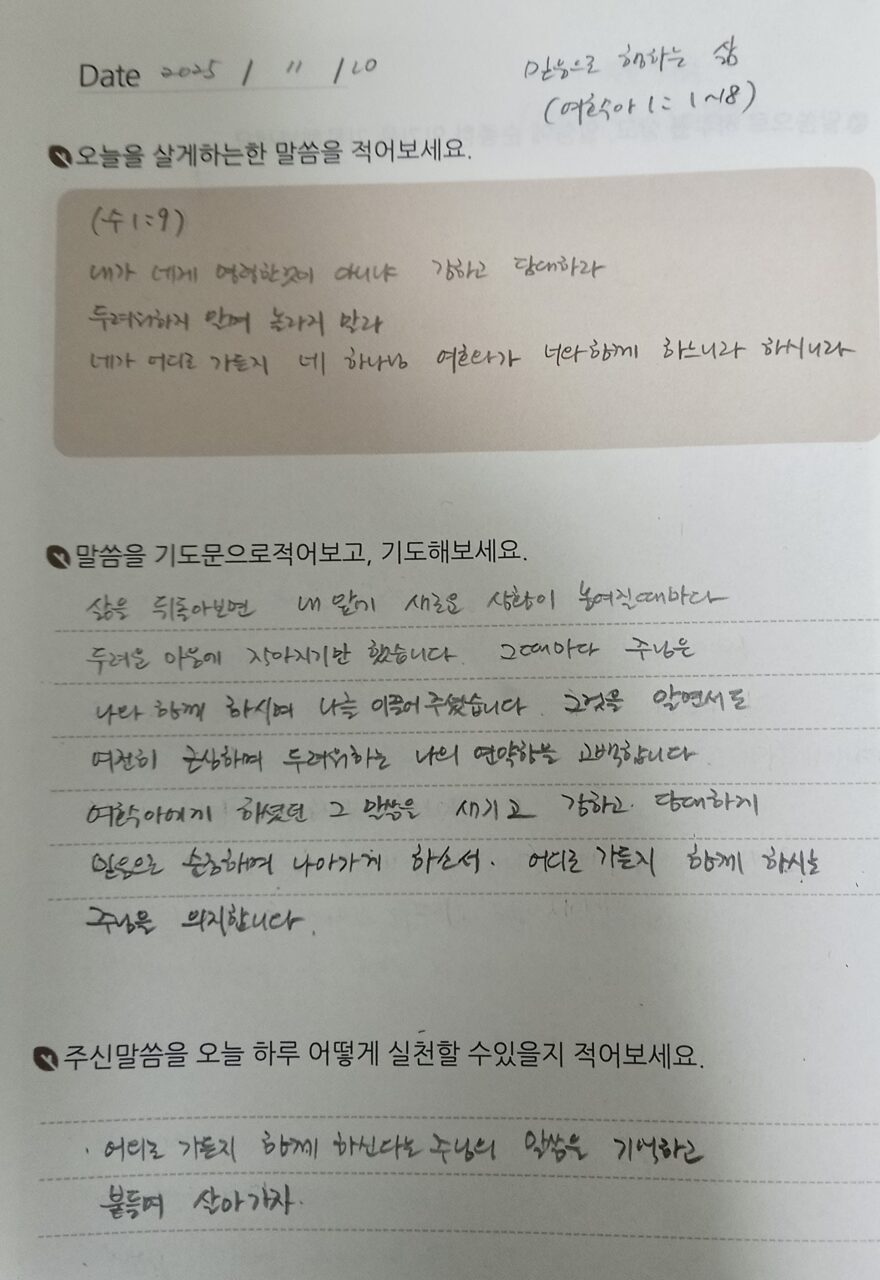 Date 2025 / 11 / 20
믿음으로 행하는 삶
(여호수아 1: 1~18)
오늘을 살게하는한 말씀을 적어보세요.
(수 1:9)
내가 네게 명령한것이 아니냐 강하고 담대하라
두려워하지 말며 놀라지 말라
네가 어디로 가든지 네 하나님 여호와가 너와 함께 하느니라 하시니라
말씀을 기도문으로적어보고, 기도해보세요.
삶을 뒤돌아보면 내 앞에 새로운 상황이 놓여질때마다
두려운 마음에 작아지기만 했습니다. 그때마다 주님은
나와 함께 하시며 나를 이끌어 주셨습니다. 그것을 알면서도
여전히 근심하며 두려워하는 나의 연약함을 고백합니다.
여호수아에게 하셨던 그 말씀을 새기고 강하고 담대하게
믿음으로 순종하며 나아가게 하소서. 어디로 가든지 함께 하시는
주님을 의지합니다.
주신말씀을 오늘 하루 어떻게 실천할 수있을지 적어보세요.
· 어디로 가든지 함께 하신다는 주님의 말씀을 기억하고
붙들며 살아가자.